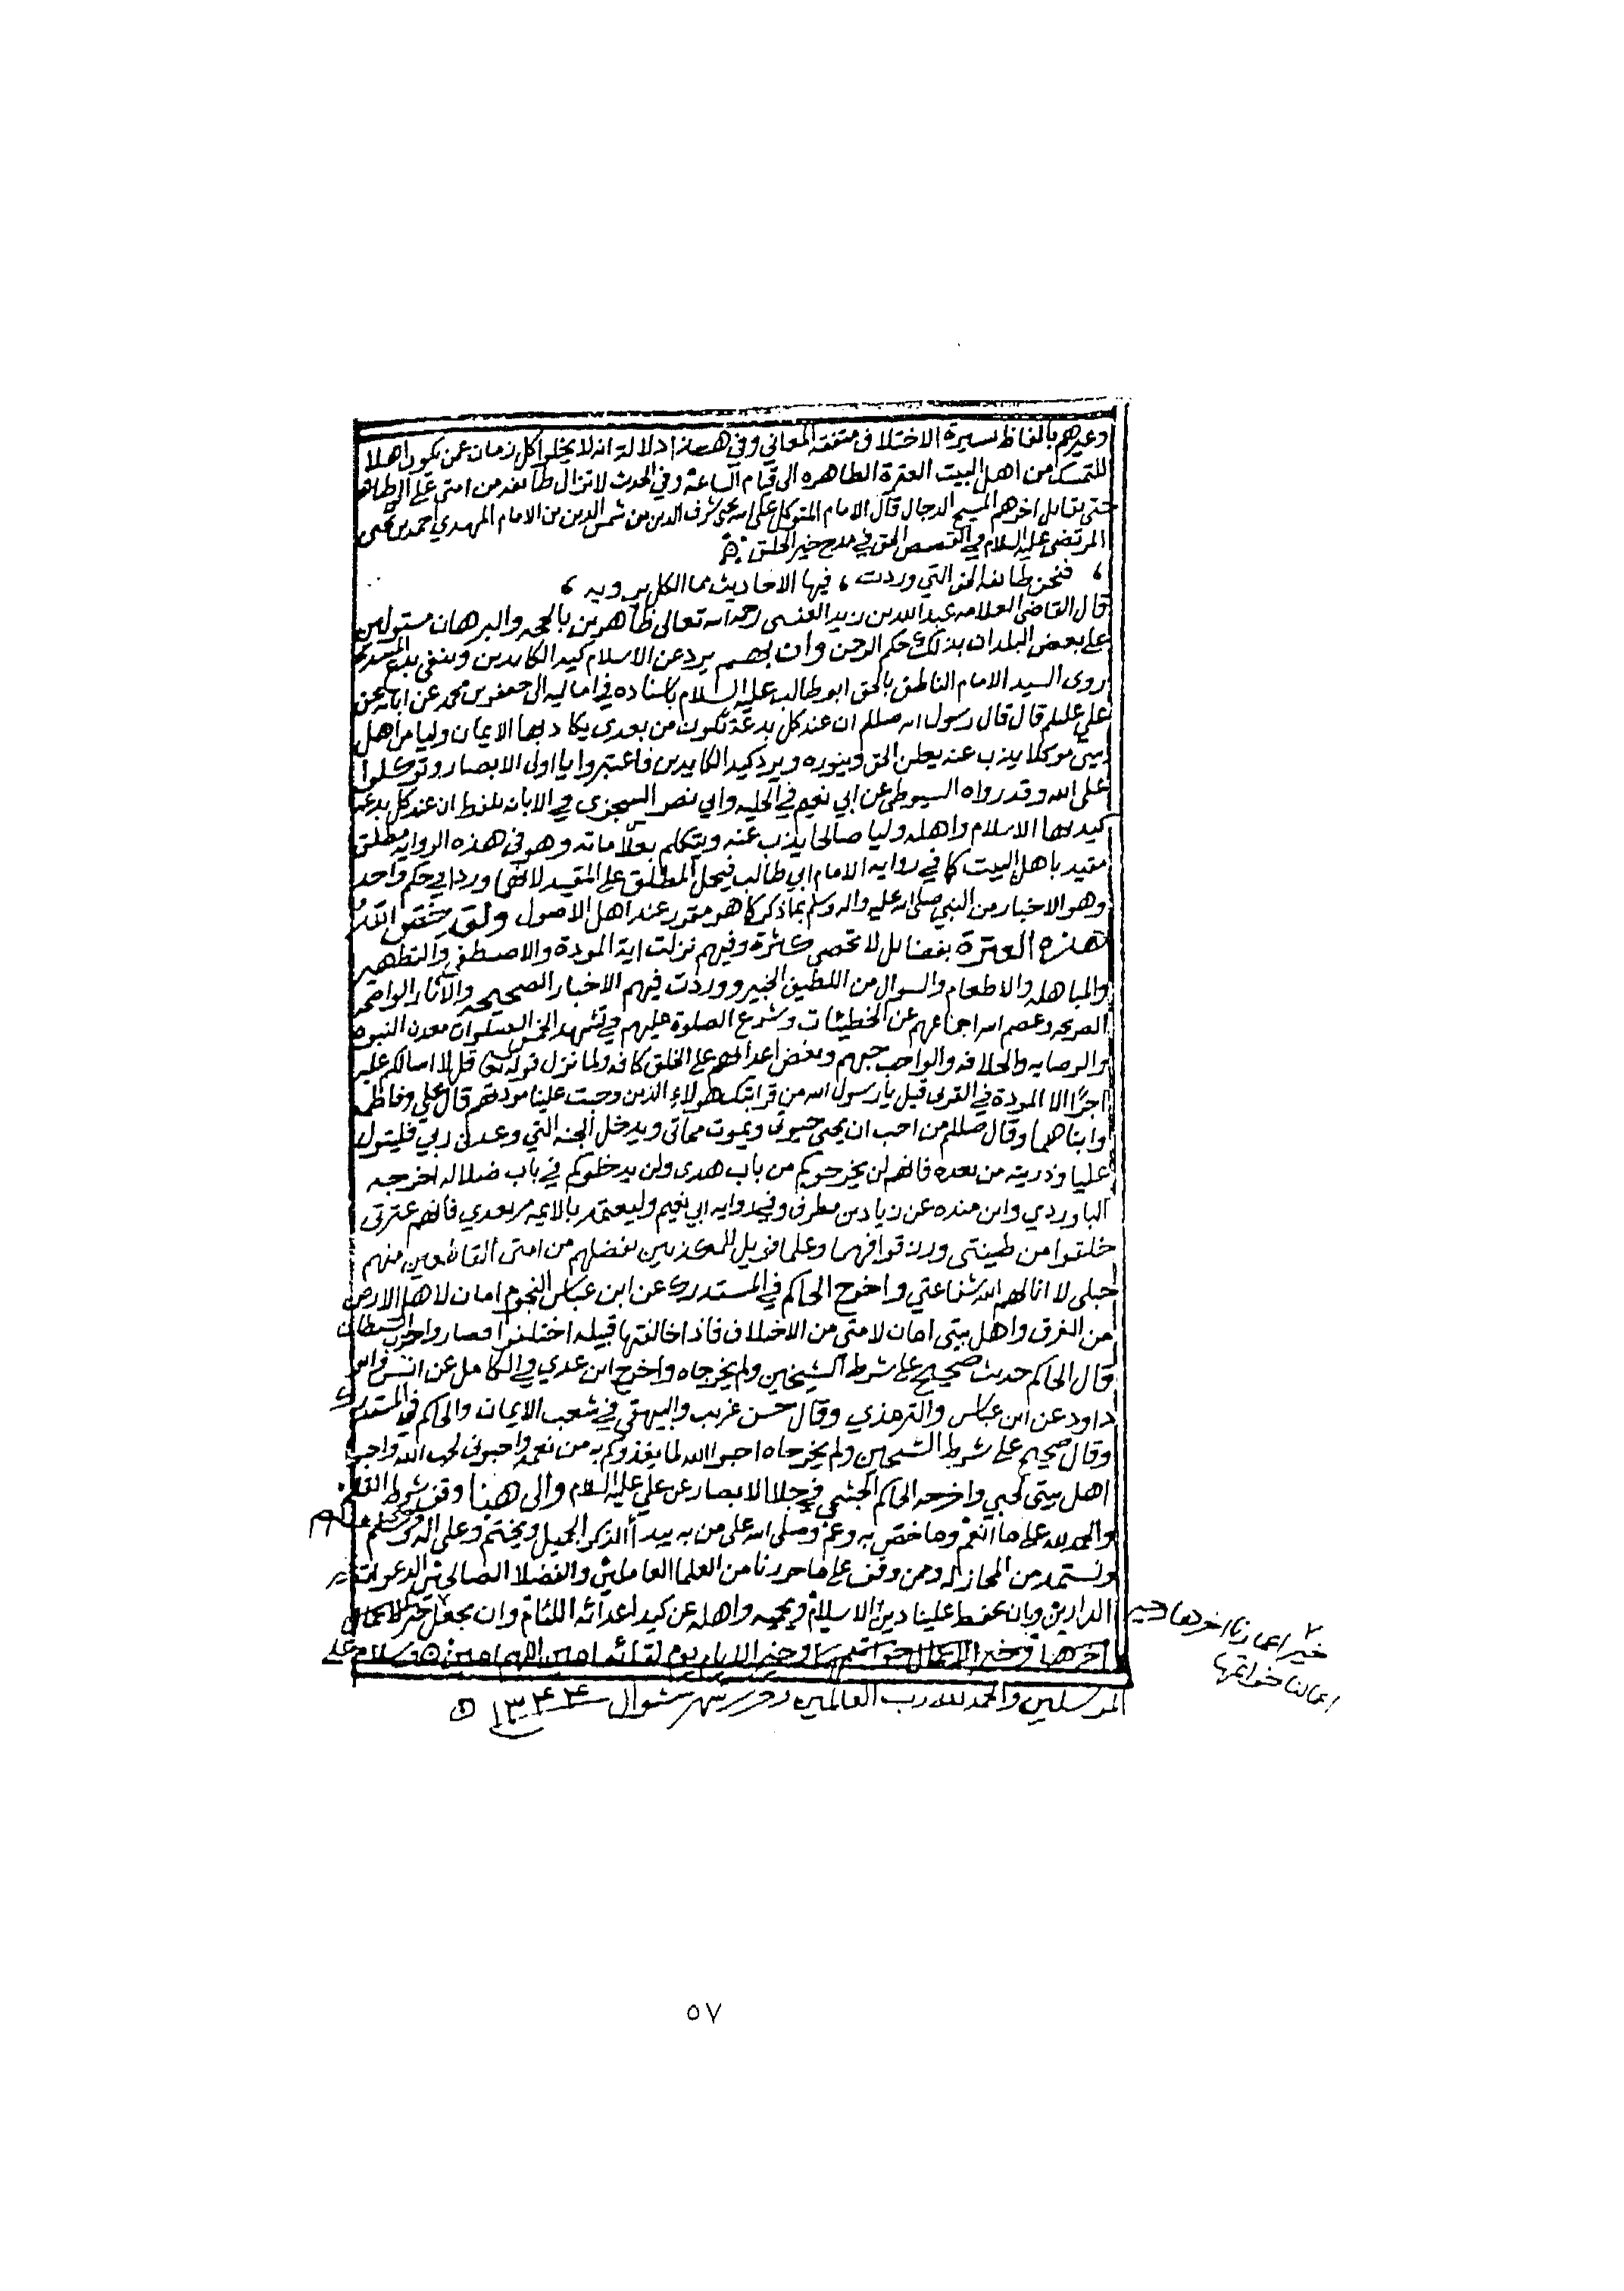 وغيرهم بالفاظ يسيرة الاختلاف متفقة المعاني وفي هذا دلالة انه لا يخلوا كل زمان عمن يكون اهلا
للتمسك من اهل البيت العترة الطاهره الى قيام الساعة وفي الحديث لا تزال طائفه من امتي على
حتى يقاتل اخرهم المسيح الدجال قال الامام المتوكل على الله يحيى شرف الدين بن شمس الدين بن الامام المهدي احمد بن يحيى
المرتضى عليه السلام في القصص الحق في مدح خير الخلق
فنحن طائفه الحق التي وردت ، فيها الاحاديث مما الكل يرويه
قال القاضي العلامه عبد الله بن زيد العنسي رحمه الله تعالى ظاهرين بالحجه والبرهان مستولين
على بعض البلدان بذلك حكم الرحمن وان بهم يرد عن الاسلام كيد الكايدين وينفي بدع
روى السيد الامام الناطق بالحق ابو طالب عليه السلام باسناده في اماليه الى جعفر بن محمد عن ابائه عن
علي عليلم قال قال رسول الله صللم ان عند كل بدعة تكون من بعدي يكاد بها الايمان وليا من اهل
بيتي موكلا يذب عنه يعلن الحق وينوره ويرد كيد الكايدين فاعتبروا يا اولى الابصار وتوكلوا
على الله وقد رواه السيوطي عن ابي نعيم في الحليه وابي نصر السجزى في الابانه بلفظ ان عند كل بدعه
كيد بها الاسلام واهله وليا صالحا يذب عنه ويتكلم بعلاماته وهو في هذه الروايه مطلق
مقيد باهل البيت كما في روايه الامام ابي طالب فيحمل المطلق على المقيد لانهما وردا في حكم واحد
وهو الاخبار من النبي صلى الله عليه واله وسلم بما ذكر كما هو مقرر عند اهل الاصول ولقد خصص الله
هذه العترة بفضائل لا تحصى كثرة وفيهم نزلت اية المودة والاصطفى والتطهير
والمباهله والاطعام والسوال من اللطيف الخبير ووردت فيهم الاخبار الصحيحه والاثار الواضحه
الصريحه وعصم الله اجماعهم عن الخطيئات وشرع الصلوة عليهم في تشهد الخمس الصلوات معدن النبوه
والوصايه والخلافه والواجب حبهم وبغض اعدائهم على الخلق كافه ولما نزل قوله تعالى قل لا اسالكم عليه
اجرًا الا المودة في القربى قيل يا رسول الله من قرابتك هولاء الذين وجبت علينا مودتهم قال علي وفاطمه
وابناهما وقال صللم من احب ان يحيى حيوتي ويموت مماتي ويدخل الجنه التي وعدني ربي فليتول
عليا وذريته من بعده فانهم لن يخرجوكم من باب هدى ولن يدخلوكم في باب ضلاله اخرجه
الباوردي وابن منده عن زياد بن مطرف وفي روايه ابي نعيم وليعتد بالائمه من بعدي فانهم عترتي
خلقوا من طينتي ورزقوا فهما وعلما فويل للمكذبين بفضلهم من امتي القاطعين منهم
صلتي لا انالهم الله شفاعتي واخرج الحاكم في المستدرك عن ابن عباس النجوم امان لاهل الارض
من الغرق واهل بيتي امان لامتي من الاختلاف فاذا خالفتها قبيله اختلفوا فصاروا حزب الشيطان
قال الحاكم حديث صحيح على شرط الشيخين ولم يخرجاه واخرج ابن عدي في الكامل عن انس وابو
داود عن ابن عباس والترمذي وقال حسن غريب والبيهقي في شعب الايمان والحاكم في المستدرك
وقال صحيح على شرط الشيخين ولم يخرجاه احبوا الله لما يغذوكم به من نعمه واحبوني لحب الله واحبوا
اهل بيتي لحبي واخرجه الحاكم الجشمي في جلا الابصار عن علي عليه السلام والى هنا وقف
والحمد لله على ما انعم وما خص به وعم وصلى الله على من به يبدأ الذكر الجميل ويختتم وعلى اله وسلم
ونستمد من المجازله ومن وقف على ما حررنا من العلما العاملين والفضلا الصالحين الدعوات
الدارين وبان يحفظ علينا دين الاسلام ويحميه واهله عن كيد اعدائه اللئام وان يجعل خير الاعمال
اخرها وخير الاعمال خواتمها وخير الايام يوم لقائه امين اللهم امين وسلام على
المرسلين والحمد لله رب العالمين شهر شوال ١٣٤٤
٢
خير اعمارنا اخرها وخير
اعمالنا خواتمها
٥٧